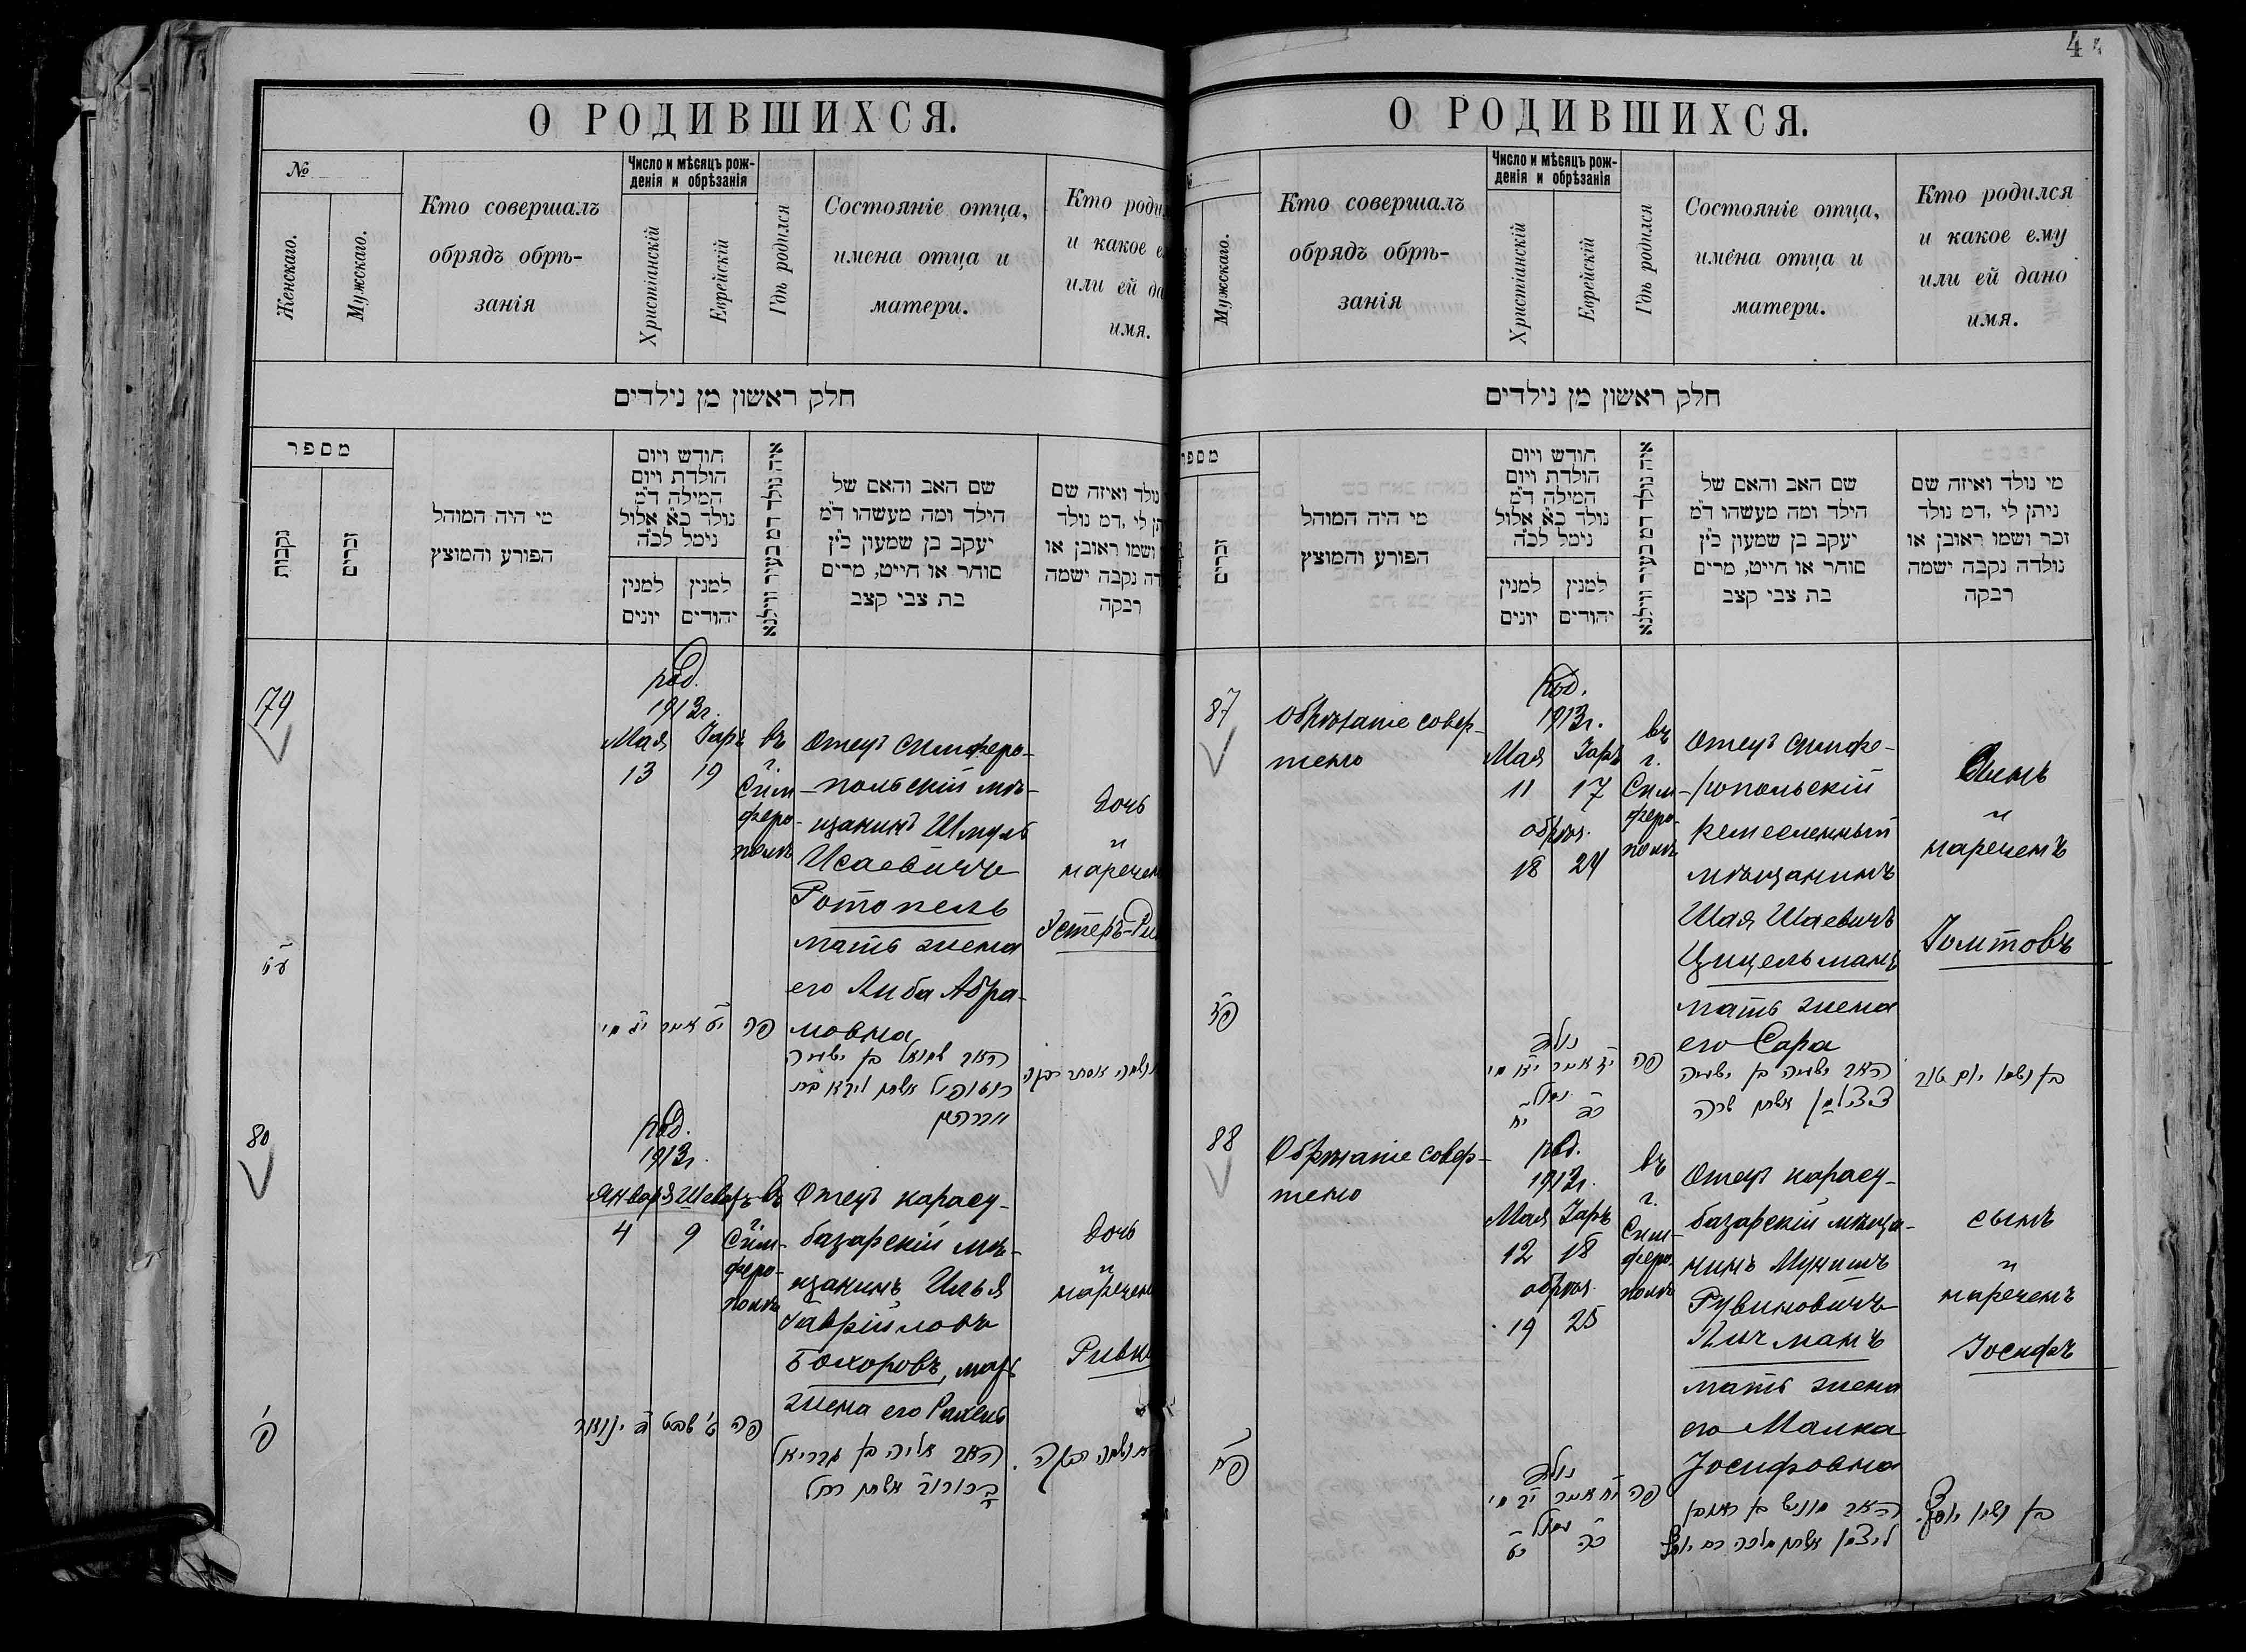 О РОДИВШИХСЯ.
№
Женскаго.
Мужскаго.
Кто совершалъ
обрядъ обрѣ-
занія
Число и мѣсяцъ рож-
денія и обрѣзанія
Христіанскій
Еврейскій
Гдѣ родился
Состояніе отца,
имена отца и
матери.
Кто роди
и какое е
или ей да
имя.
חלק ראשון מן נילדים
מספר
נקבות
זכרים
מי היה המוהל
הפורע והמוצץ
חודש ויום
הולדת ויום
המילה ד״מ
נולד כ״א אלול
נימל לכ״ה
למנין
יונים
למנין
יהודים
איה נולד דמ בעיר ווילנא
שם האב והאם של
הילד ומה מעשהו ד״מ
יעקב בן שמעון כ״ץ
סוחר או חייט, מרים
בת צבי קצב
נולד ואיזה שם
תן לי, דמ נולד
ושמו ראובן או
דה נקבה ישמה
רבקה
179
род.
1913г.
Мая Іаръ
13 19
въ
г.
Сим-
феро-
полѣ
Отецъ симферо-
польскій мѣ-
щанинъ Шмуль
Исаевичъ
Ротопель
мать жена
его Либа Абра-
мовна
дочь
и
наречен
Эстеръ-Ри
פה
האב שמואל בן ישעיה
80
род.
1913г.
Января Шеватъ
4 9
въ
г.
Сим-
феро-
полѣ
Отецъ карасу-
базарскій мѣ-
щанинъ Илья
Гавріиловъ
Бохоровъ, мать
жена его Рахель
дочь
и
наречен
Ривк
פ׳
ט׳ שבט ד׳ ינואר
פה
האב אליה בן גבריאל
בוכורוב אשתו רחל
ושמה רבקה
4
О РОДИВШИХСЯ.
Мужскаго.
Кто совершалъ
обрядъ обрѣ-
занія
Число и мѣсяцъ рож-
денія и обрѣзанія
Христіанскій
Еврейскій
Гдѣ родился
Состояніе отца,
имена отца и
матери.
Кто родился
и какое ему
или ей дано
имя.
חלק ראשון מן נילדים
מספר
זכרים
מי היה המוהל
הפורע והמוצץ
חודש ויום
הולדת ויום
המילה ד״מ
נולד כ״א אלול
נימל לכ״ה
למנין
יונים
למנין
יהודים
איה נולד דמ בעיר ווילנא
שם האב והאם של
הילד ומה מעשהו ד״מ
יעקב בן שמעון כ״ץ
סוחר או חייט, מרים
בת צבי קצב
מי נולד ואיזה שם
ניתן לי, דמ נולד
זכר ושמו ראובן או
נולדה נקבה ישמה
רבקה
87
обрѣзаніе совер-
шено
род.
1913г.
Мая Іаръ
11 17
обрѣз.
18 24
въ
г.
Сим-
феро-
полѣ
Отецъ симфе-
ропольскій
ремесленный
мѣщанинъ
Шая Шаевичъ
Цицельманъ
мать жена
его Сара
Сынъ
и
нареченъ
Іомтовъ
פ״ז
נולד
י״ז אייר י״א מי
נימול
כ״ד י״ח
פה
האב ישעיה בן ישעיה
ציצילמן אשתו שרה
בן ושמו יום טוב
88
Обрѣзаніе совер-
шено
род.
1913г.
Мая Іаръ
12 18
обрѣз.
19 25
въ
г.
Сим-
феро-
полѣ
Отецъ карасу-
базарскій мѣща-
нинъ Мунишъ
Рувиновичъ
Личманъ
мать жена
его Малка
Іосифовна
сынъ
и
нареченъ
Іосифъ
פ״ח
נולד
י״ח אייר י״ב מי
נימול
כ״ה י״ט
פה
האב מוניש בן ראובן
ליצמן אשתו מלכה בת יוסף
בן ושמו יוסף